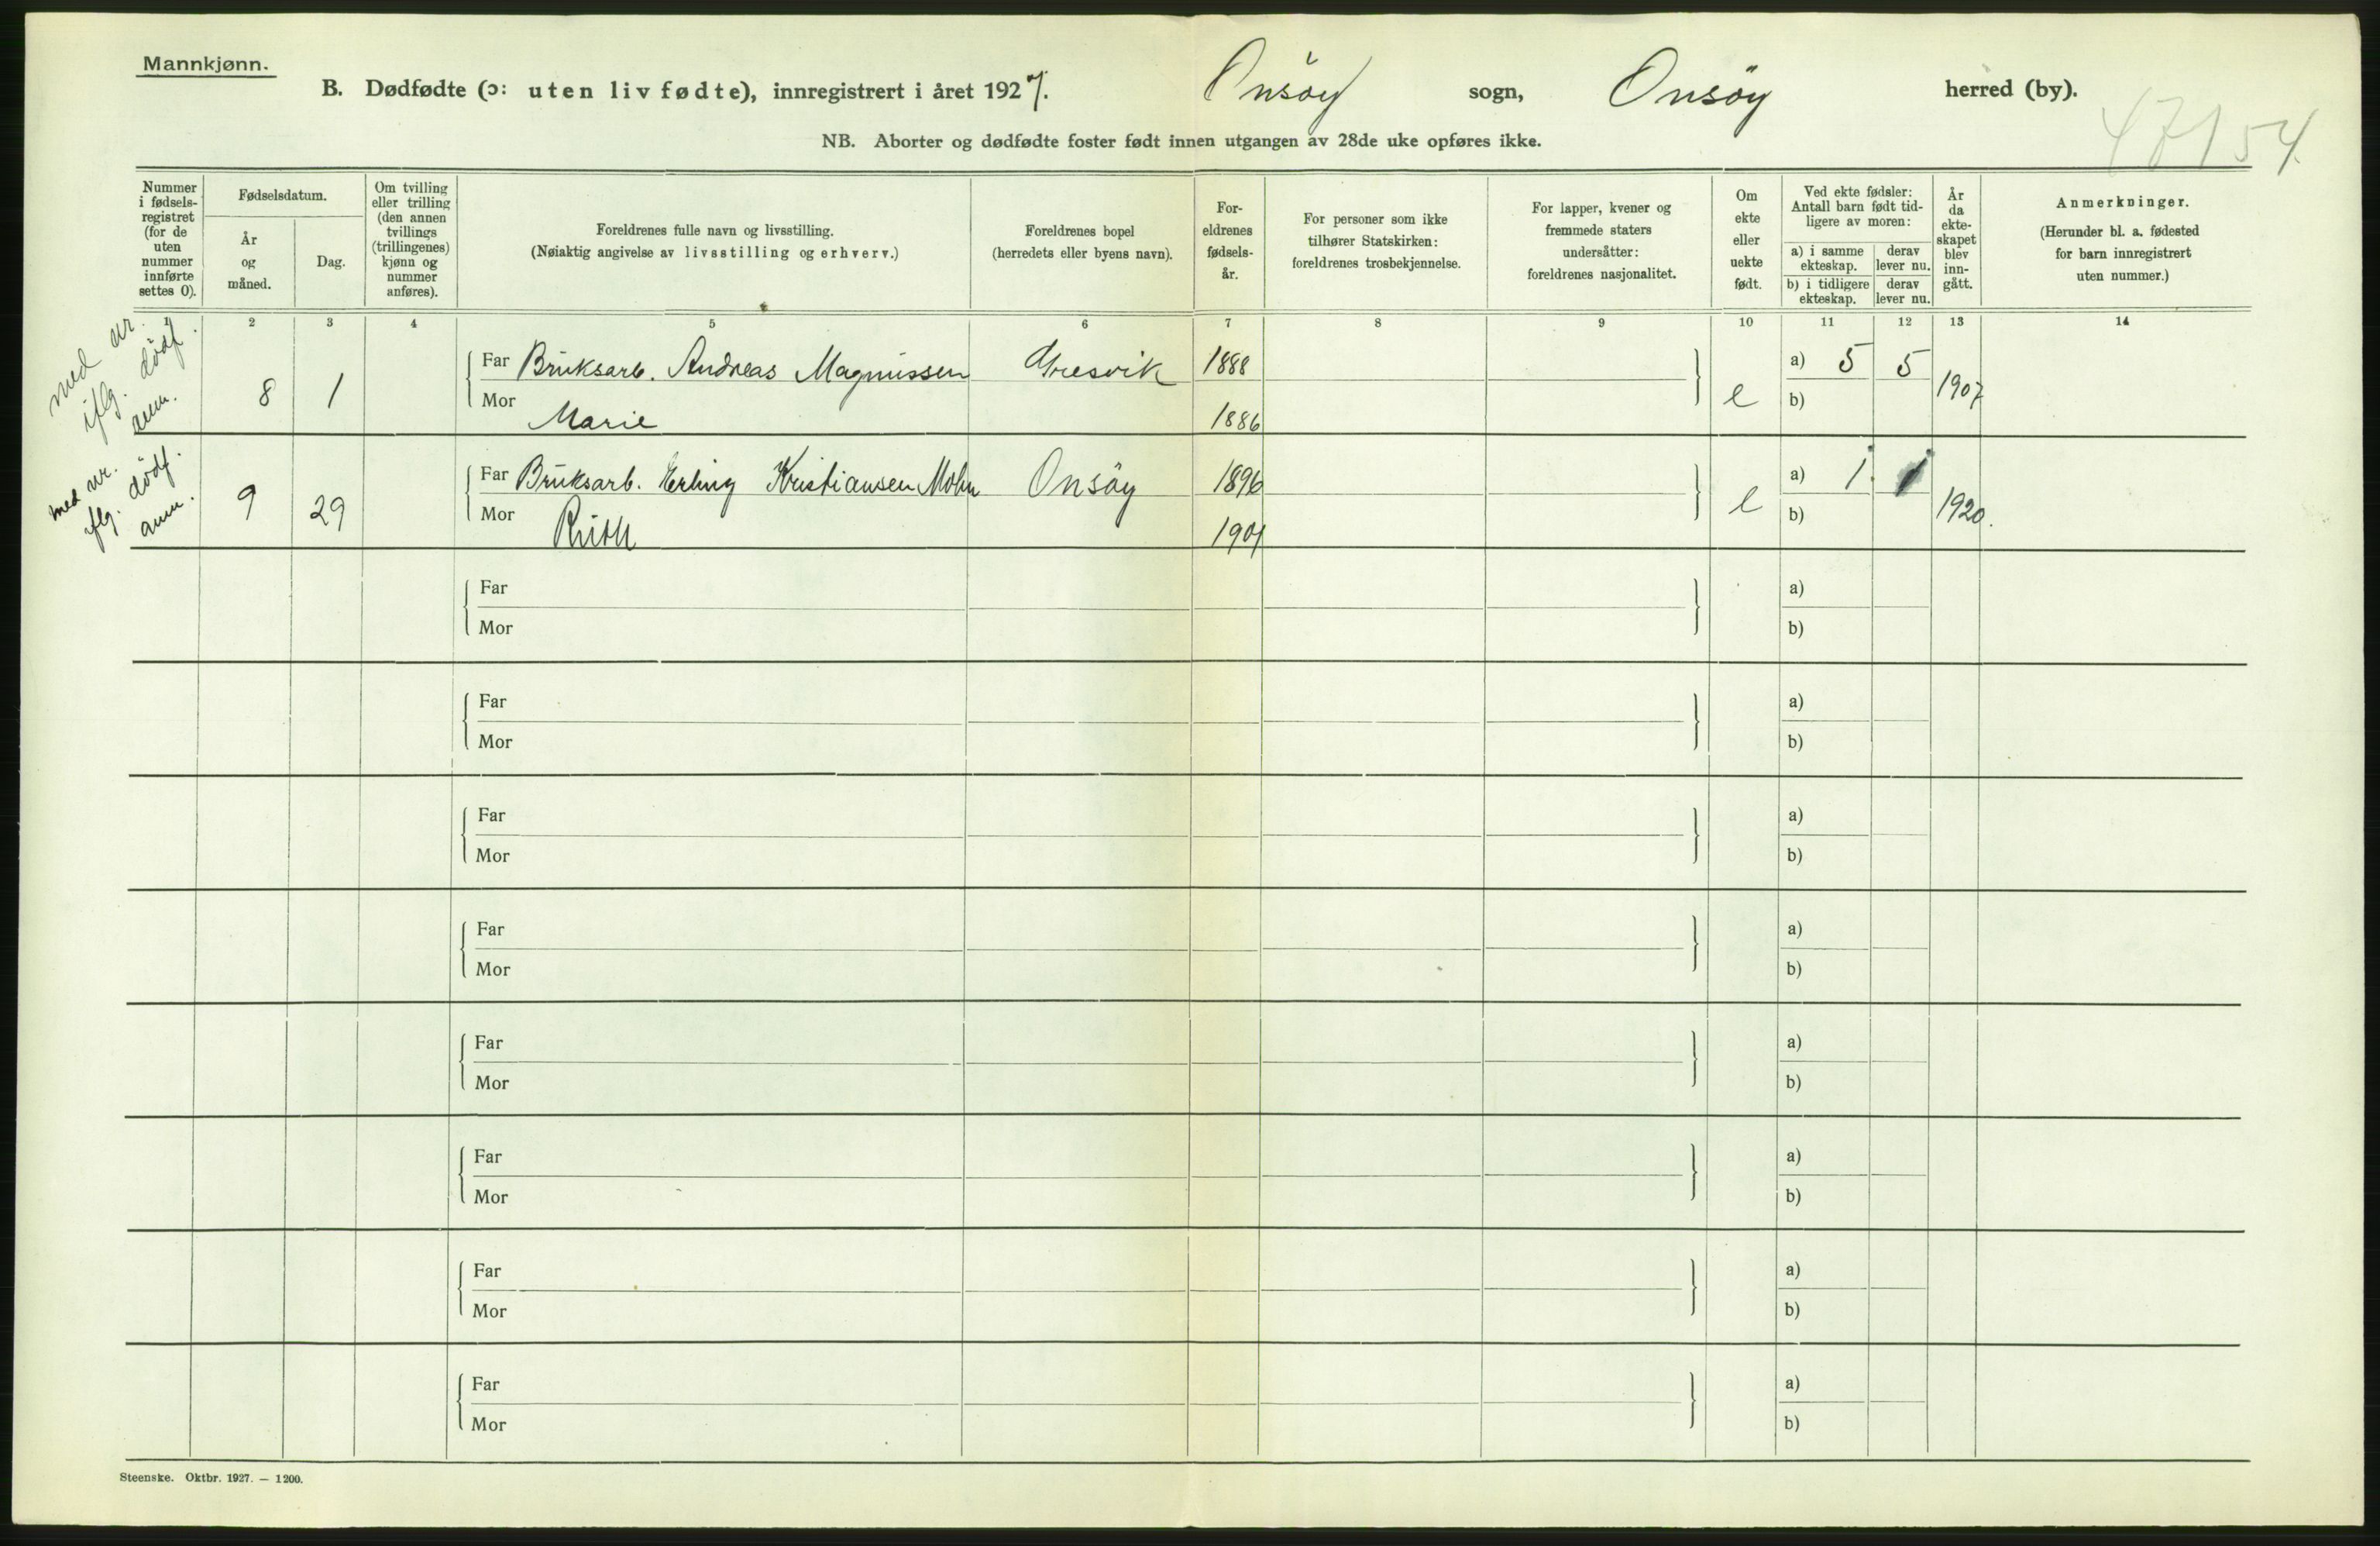 Mannkjønn.
B. Dødfødte (ɔ: uten liv fødte), innregistrert i året 1927. Onsöy sogn, Onsöy herred (by).
47154
NB. Aborter og dødfødte foster født innen utgangen av 28de uke opføres ikke.
Nummer i fødsels-registret (for de uten nummer innførte settes 0).
Fødselsdatum.
År og måned.
Dag.
Om tvilling eller trilling (den annen tvillings (trillingenes) kjønn og nummer anføres).
Foreldrenes fulle navn og livsstilling.
(Nøiaktig angivelse av livsstilling og erhverv.)
Foreldrenes bopel
(herredets eller byens navn).
For-eldrenes fødsels-år.
For personer som ikke tilhører Statskirken: foreldrenes trosbekjennelse.
For lapper, kvener og fremmede staters undersåtter: foreldrenes nasjonalitet.
Om ekte eller uekte født.
Ved ekte fødsler: Antall barn født tid-ligere av moren:
a) i samme ekteskap.
derav lever nu.
b) i tidligere ekteskap.
derav lever nu.
År da ekte-skapet blev inn-gått.
Anmerkninger.
(Herunder bl. a. fødested for barn innregistrert uten nummer.)
1 2 3 4 5 6 7 8 9 10 11 12 13 14
med nr.
iflg. dödf.
anm.
8 1 Far Bruksarb. Andreas Magnussen Gresvik 1888 e a) 5 5 1907
Mor Marie 1886 b)
med nr.
iflg. dödf.
anm.
9 29 Far Bruksarb. Erling Kristiansen Mohn Onsöy 1896 e a) 1 1 1920.
Mor Ruth 1901 b)
Far a)
Mor b)
Far a)
Mor b)
Far a)
Mor b)
Far a)
Mor b)
Far a)
Mor b)
Far a)
Mor b)
Far a)
Mor b)
Far a)
Mor b)
Steenske. Oktbr. 1927. — 1200.